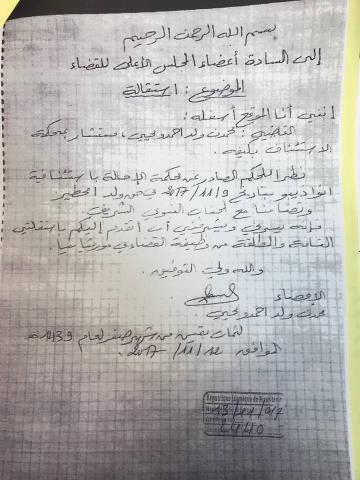 بسم الله الرحمن الرحيم
إلى السادة أعضاء المجلس الأعلى للقضاء
الموضوع: استقالة
إنني أنا الموقع أسفله:
القاضي: محمدن ولد احمدو يحيى، مستشار بمحكمة
الاستئناف بكيفه.
نظرا للحكم الصادر عن محكمة الإحالة باستئنافية
انواذيبو بتاريخ 2017/11/9 في حق ولد امخيطير
وتضامنا مع الجناب النبوي الشريف
فإنه يسرني ويشرفني أن أتقدم إليكم باستقالتي
التامة والمطلقة من وظيفة القضاء في موريتانيا.
والله ولي التوفيق.
الإمضاء
محمدن ولد احمدو يحيى
لثمان بقين من شهر صفر لعام 1439 هـ
الموافق 12/11/2017.
République Islamique de Mauritanie